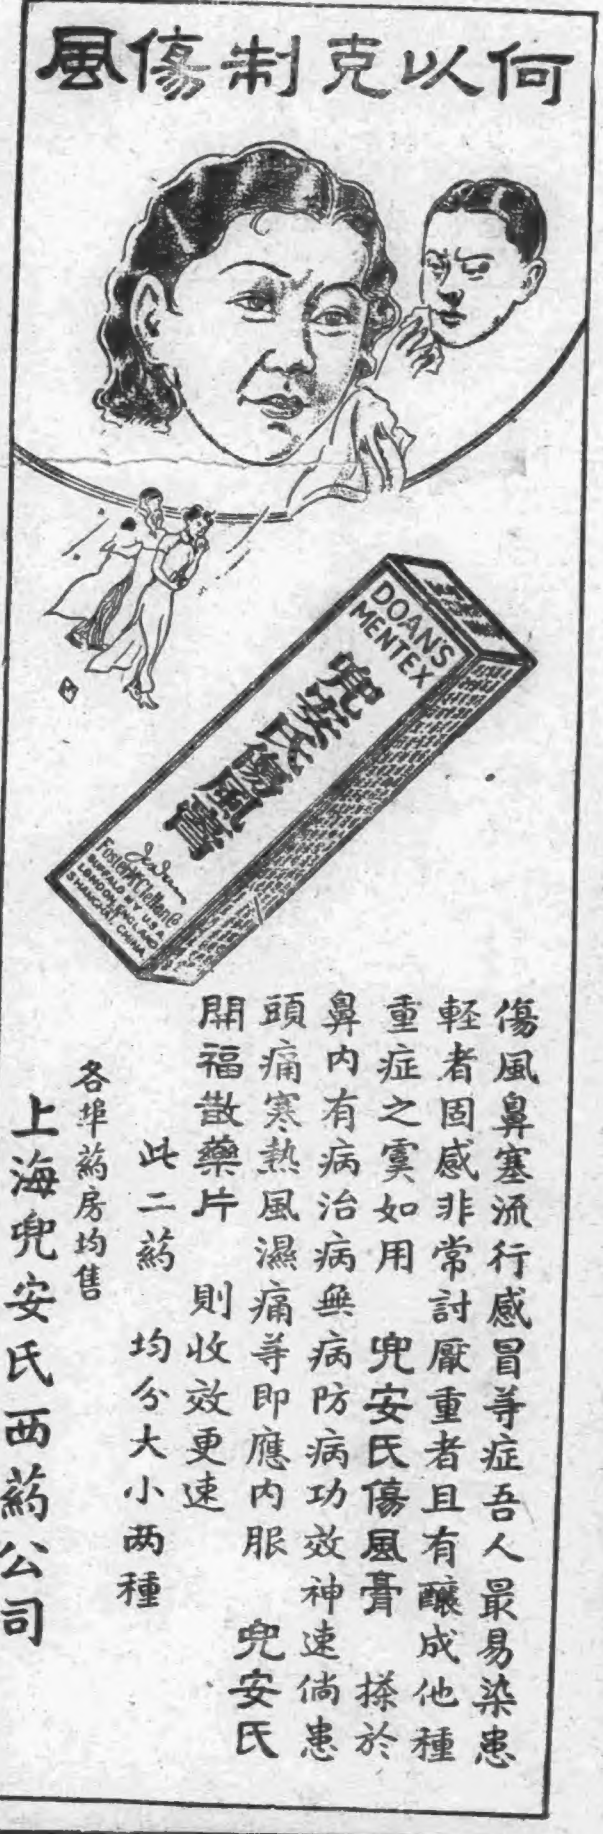 何以克制傷風
DOAN'S
MENTEX
兜安氏傷風膏
Foster-McClellan Co
BUFFALO N.Y. U.S.A.
LONDON, ENGLAND
SHANGHAI CHINA
傷風鼻塞流行感冒等症吾人最易染患
輕者固感非常討厭重者且有釀成他種
重症之虞如用 兜安氏傷風膏 搽於
鼻內有病治病無病防病功效神速倘患
頭痛寒熱風濕痛等即應內服 兜安氏
開福散藥片 則收效更速
此二藥 均分大小兩種
各埠藥房均售
上海兜安氏西藥公司